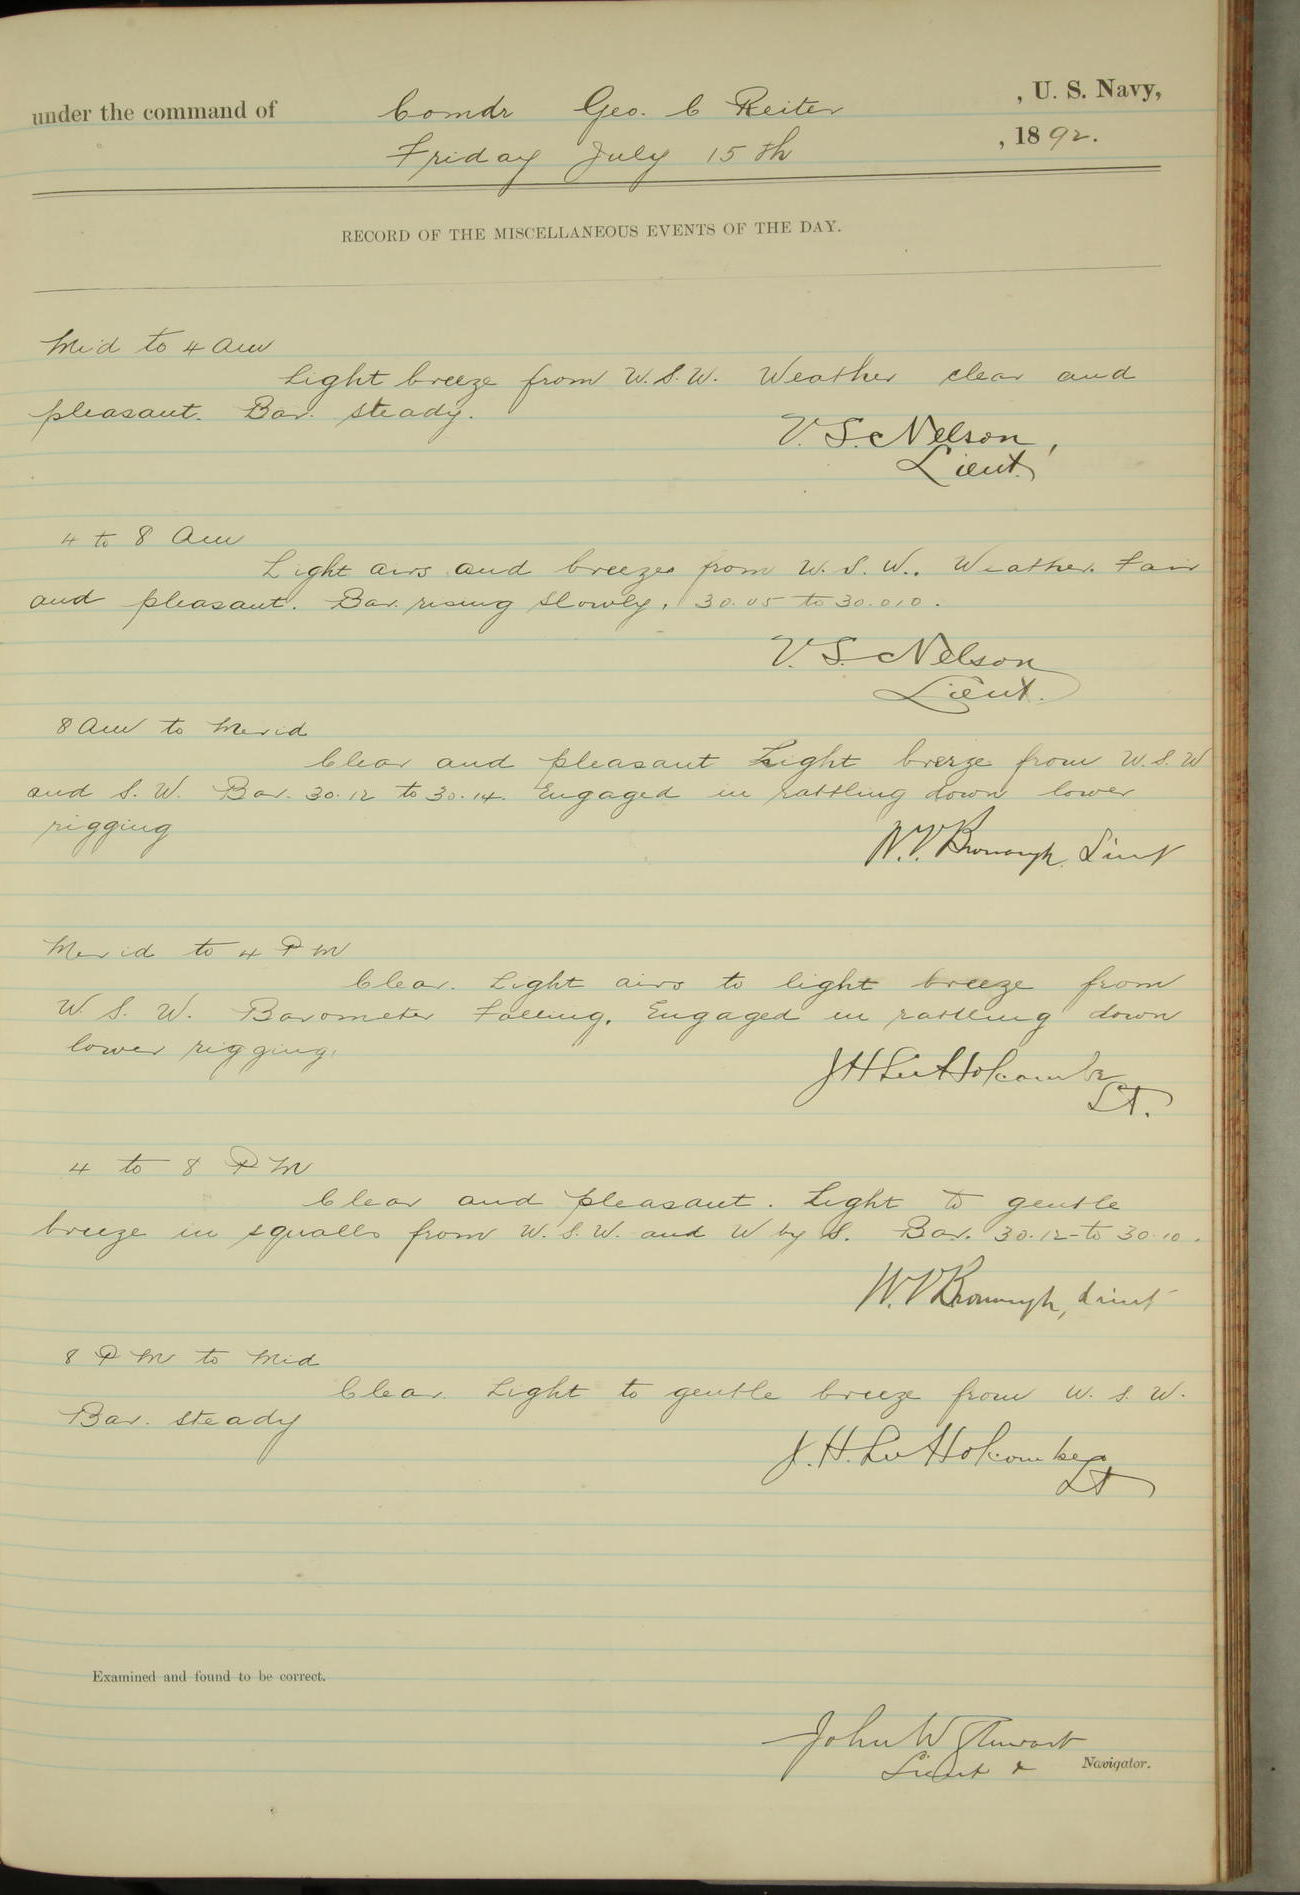 under the command of Comdr Geo. C Reiter , U. S. Navy,
Friday July 15th , 1892.
RECORD OF THE MISCELLANEOUS EVENTS OF THE DAY.
Mid to 4 am
Light breeze from W.S.W. Weather clear and
pleasant. Bar. steady.
V. S. Nelson,
Lieut.
4 to 8 am
Light airs and breezes from W. S. W. Weather Fair
and pleasant. Bar. rising slowly. 30.05 to 30.010.
V. S. Nelson
Lieut.
8 am to Merid
Clear and pleasant Light breeze from W.S.W
and S. W. Bar. 30.12 to 30.14. Engaged in rattling down lower
rigging
W. V. Bronaugh, Lieut
Merid to 4 P M
Clear. Light airs to light breeze from
W. S. W. Barometer Falling. Engaged in rattling down
lower rigging.
J H Lee Holcombe
Lt.
4 to 8 P M
Clear and pleasant. Light to gentle
breeze in squalls from W. S. W. and W by S. Bar. 30.12 to 30.10.
W. V. Bronaugh, Lieut
8 P M to Mid
Clear. Light to gentle breeze from W. S. W.
Bar. steady
J. H. Lee Holcombe
Lt
Examined and found to be correct.
John W Stewart
Lieut & Navigator.